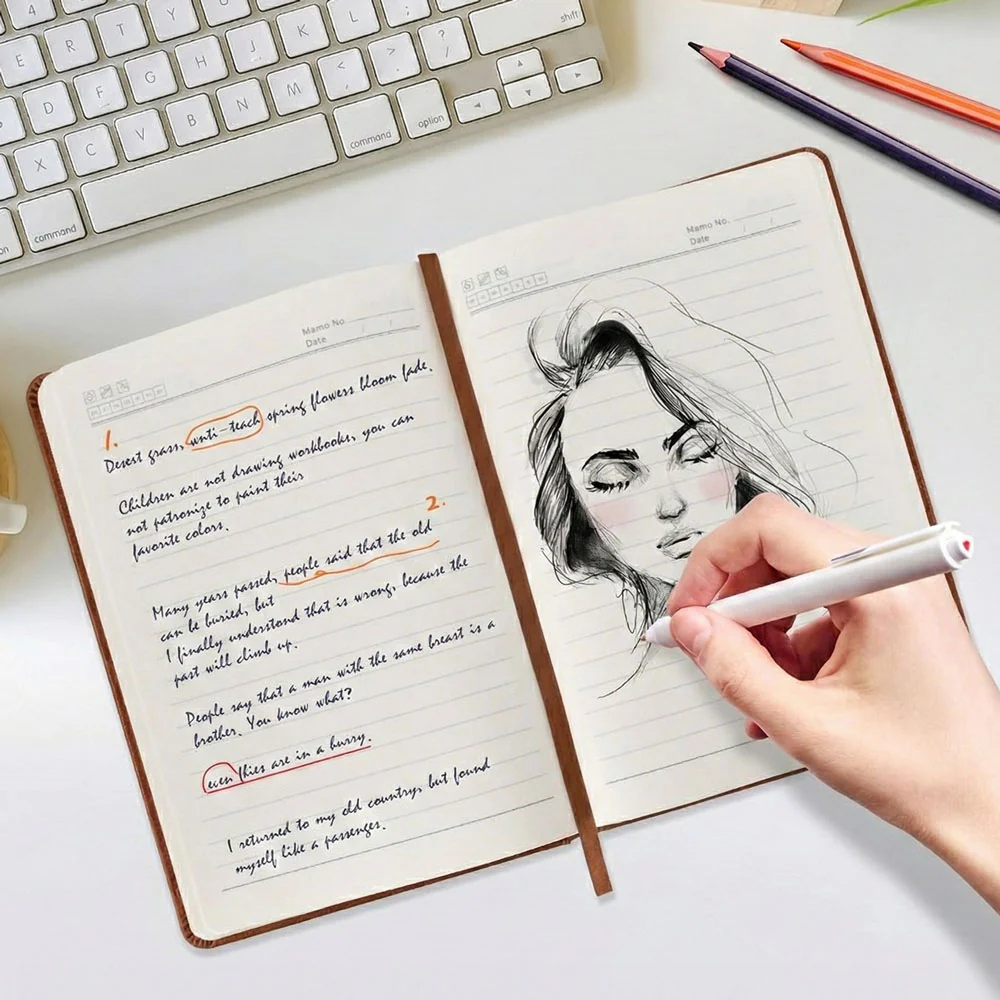 4
E R T Y U I O P
shift
D F G H J K L ;
X C V B N M < , > . ? /
command option
command
Mamo No. / /
Date
Mamo No / /
Date
1.
Desest grass, wnti-teach spring flowers bloom fade.
Children are not drawing workbooks, you can
not patronize to paint theis
favorite colors.
2.
Many years passed, people said that the old
can be buried, but
I finally undesstand that is wrong, because the
past will climb up.
People say that a man with the same breast is a
brothes. You know what?
even thies are in a hurry.
I returned to my old country, but found
myself like a passenges.